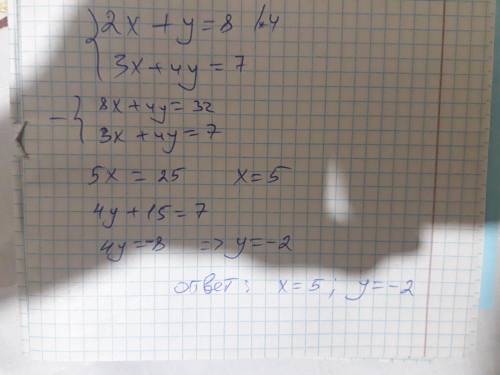 2x + y = 8 /·4
3x + 4y = 7
8x + 4y = 32
3x + 4y = 7
5x = 25 x = 5
4y + 15 = 7
4y = -8 => y = -2
ответ: x = 5; y = -2